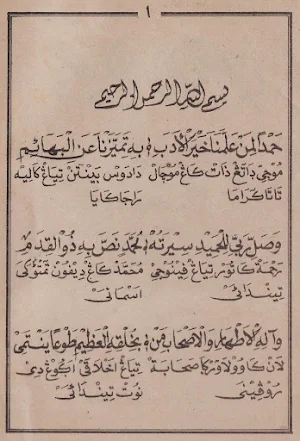 ١
بسم الله الرحمن الرحيم
حمدا لمن علمنا خير الأدب ؛ به تميزنا عن البهائم
موجي داتڠ ذات كاغ موچال دادوس بينتن تياغ كاليه
تاتا كراما راجا كايا
وصل ربي للمجيد سيرته ؛ محمد نص به ذو القدم
رحمة كاتور تياغ فينوجي محمد كاغ ديفون
تيندائي اسماني
وآله الأطهار والأصحاب من ؛ بخلقه العظيم طوعا ينتمي
لان صحابة تياغ اخلاقي اكوغ دي
نوت تيندائي